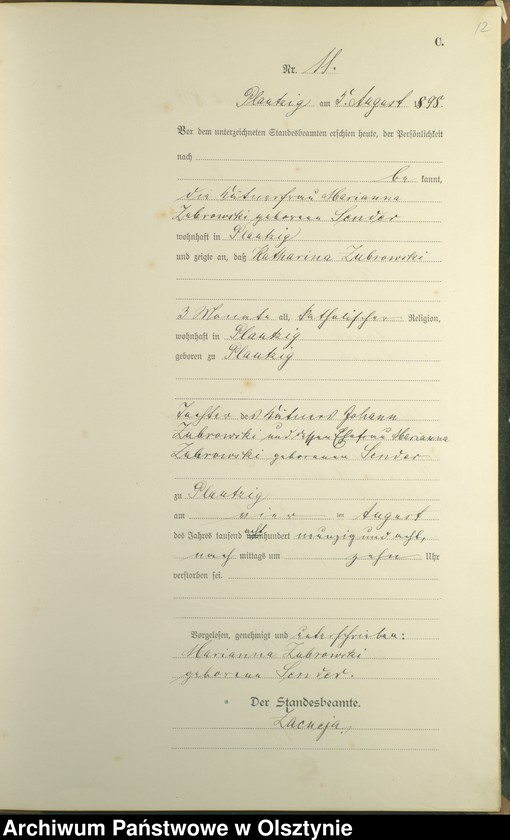 12
C.
Nr. 11.
Plautzig am 5. August 1898.
Vor dem unterzeichneten Standesbeamten erschien heute, der Persönlichkeit
nach
be kannt,
die Kätnerfrau Marianna
Zubrowski geborene Sender
wohnhaft in Plautzig
und zeigte an, daß Katharina Zubrowski
3 Monate alt, katholischer Religion,
wohnhaft in Plautzig
geboren zu Plautzig
Tochter des Kätners Johann
Zubrowski und dessen Ehefrau Marianna
Zubrowski geborenen Sender
zu Plautzig
am vier ten August
des Jahres tausend acht hundert neunzig und acht,
nach mittags um zehn Uhr
verstorben sei.
Vorgelesen, genehmigt und unterschrieben:
Marianna Zubrowski
geborene Sender.
Der Standesbeamte.
Archiwum Państwowe w Olsztynie